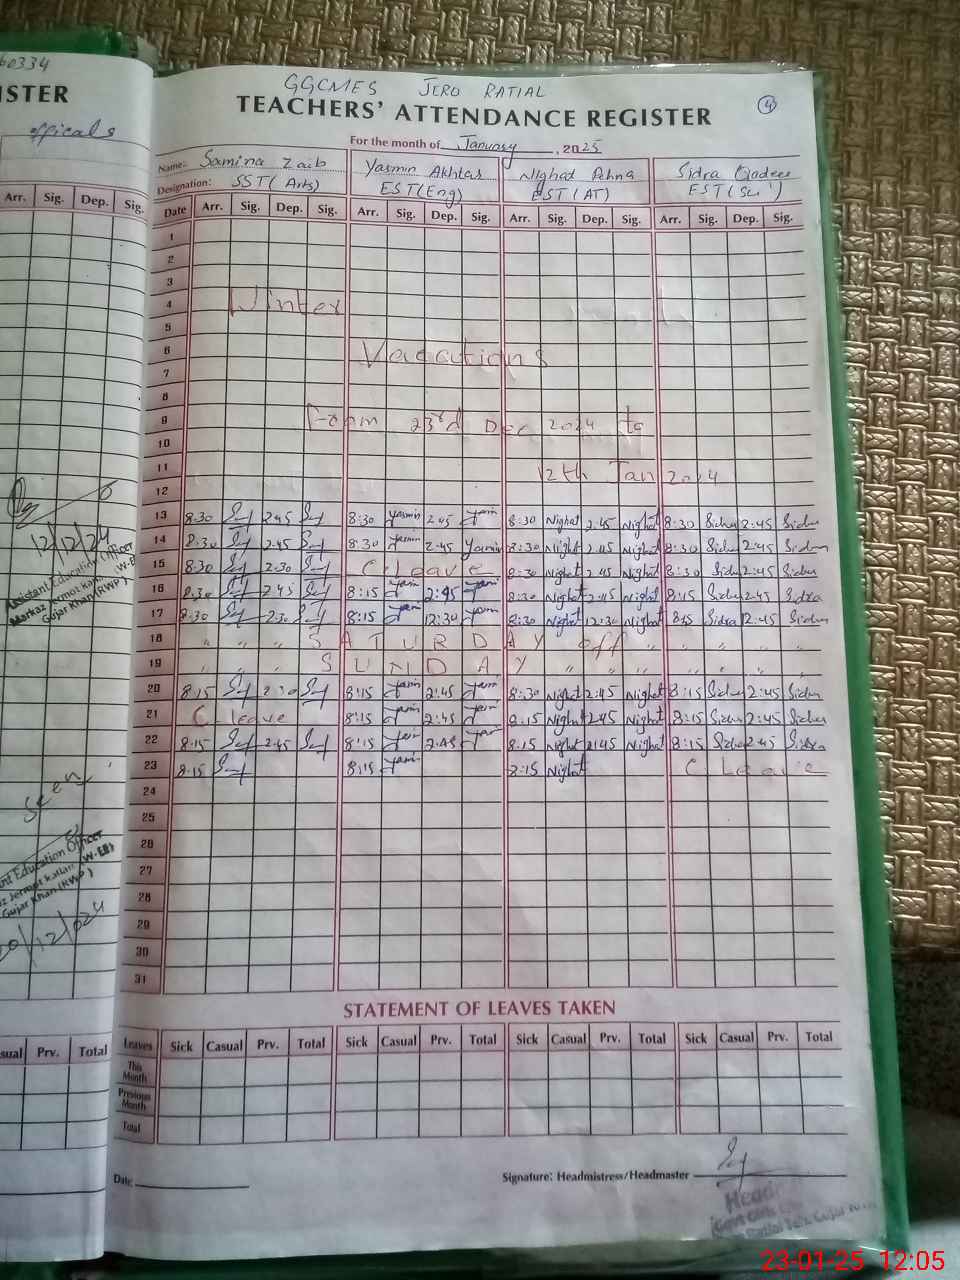 60334
ISTER
officals
Arr. Sig. Dep. Sig.
12/12/24
Assistant Education Officer
Markaz Jermot Kalan (W-EE)
Gujar Khan (RWP)
Seen
Education Officer
Jermot Kallan (W-EE)
Gujar Khan (RWP)
20/12/024
Casual Prv. Total
GGCMES JERO RATIAL
4
TEACHERS' ATTENDANCE REGISTER
For the month of January, 2025
Name: Samina Zaib Yasmin Akhtar Nighat Sidra Qadeer
Designation: SST (Arts) EST (Eng) EST (AT) EST (Sci)
Date Arr. Sig. Dep. Sig. Arr. Sig. Dep. Sig. Arr. Sig. Dep. Sig. Arr. Sig. Dep. Sig.
1
2
3
4 Winter
5
6 Vacations
7
8
9 From 23rd Dec 2024 to
10
11 12th Jan 2024
12
13 8:30 2:45 8:30 Yasmin 2:45 Yasmin 8:30 Nighat 2:45 Nighat 8:30 Sidra 2:45 Sidra
14 8:30 2:45 8:30 Yasmin 2:45 Yasmin 8:30 Nighat 2:45 Nighat 8:30 Sidra 2:45 Sidra
15 8:30 2:30 C. Leave 8:30 Nighat 2:45 Nighat 8:30 Sidra 2:45 Sidra
16 8:30 2:45 8:15 Yasmin 2:45 Yasmin 8:30 Nighat 2:45 Nighat 8:15 Sidra 2:45 Sidra
17 8:30 2:30 8:15 Yasmin 12:30 Yasmin 8:30 Nighat 12:30 Nighat 8:15 Sidra 2:45 Sidra
18 " " " SATURDAY off " " " " "
19 " " " SUNDAY " " " " " " "
20 8:15 2:30 8:15 Yasmin 2:45 Yasmin 8:30 Nighat 2:45 Nighat 8:15 Sidra 2:45 Sidra
21 C leave 8:15 Yasmin 2:45 Yasmin 8:15 Nighat 2:45 Nighat 8:15 Sidra 2:45 Sidra
22 8:15 2:45 8:15 Yasmin 2:45 Yasmin 8:15 Nighat 2:45 Nighat 8:15 Sidra 2:45 Sidra
23 8:15 8:15 Yasmin 8:15 Nighat C Leave
24
25
26
27
28
29
30
31
STATEMENT OF LEAVES TAKEN
Leaves Sick Casual Prv. Total Sick Casual Prv. Total Sick Casual Prv. Total Sick Casual Prv. Total
This Month
Previous Month
Total
Date:
Signature: Headmistress/Headmaster
Head
Govt Girls
Gujar Khan
23-01-25 12:05